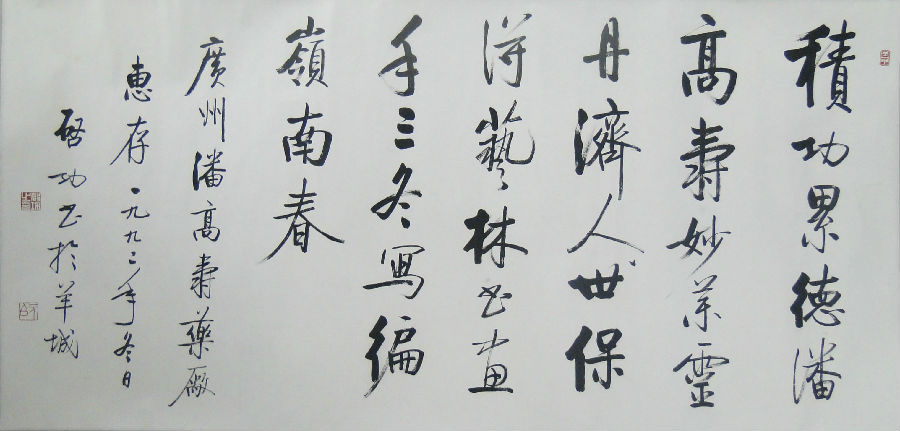 積功累德潘
高壽妙药靈
丹濟人世保
得藝林书畫
手三冬寫徧
嶺南春
廣州潘高壽藥厰
惠存一九九二年冬日
啓功书於羊城